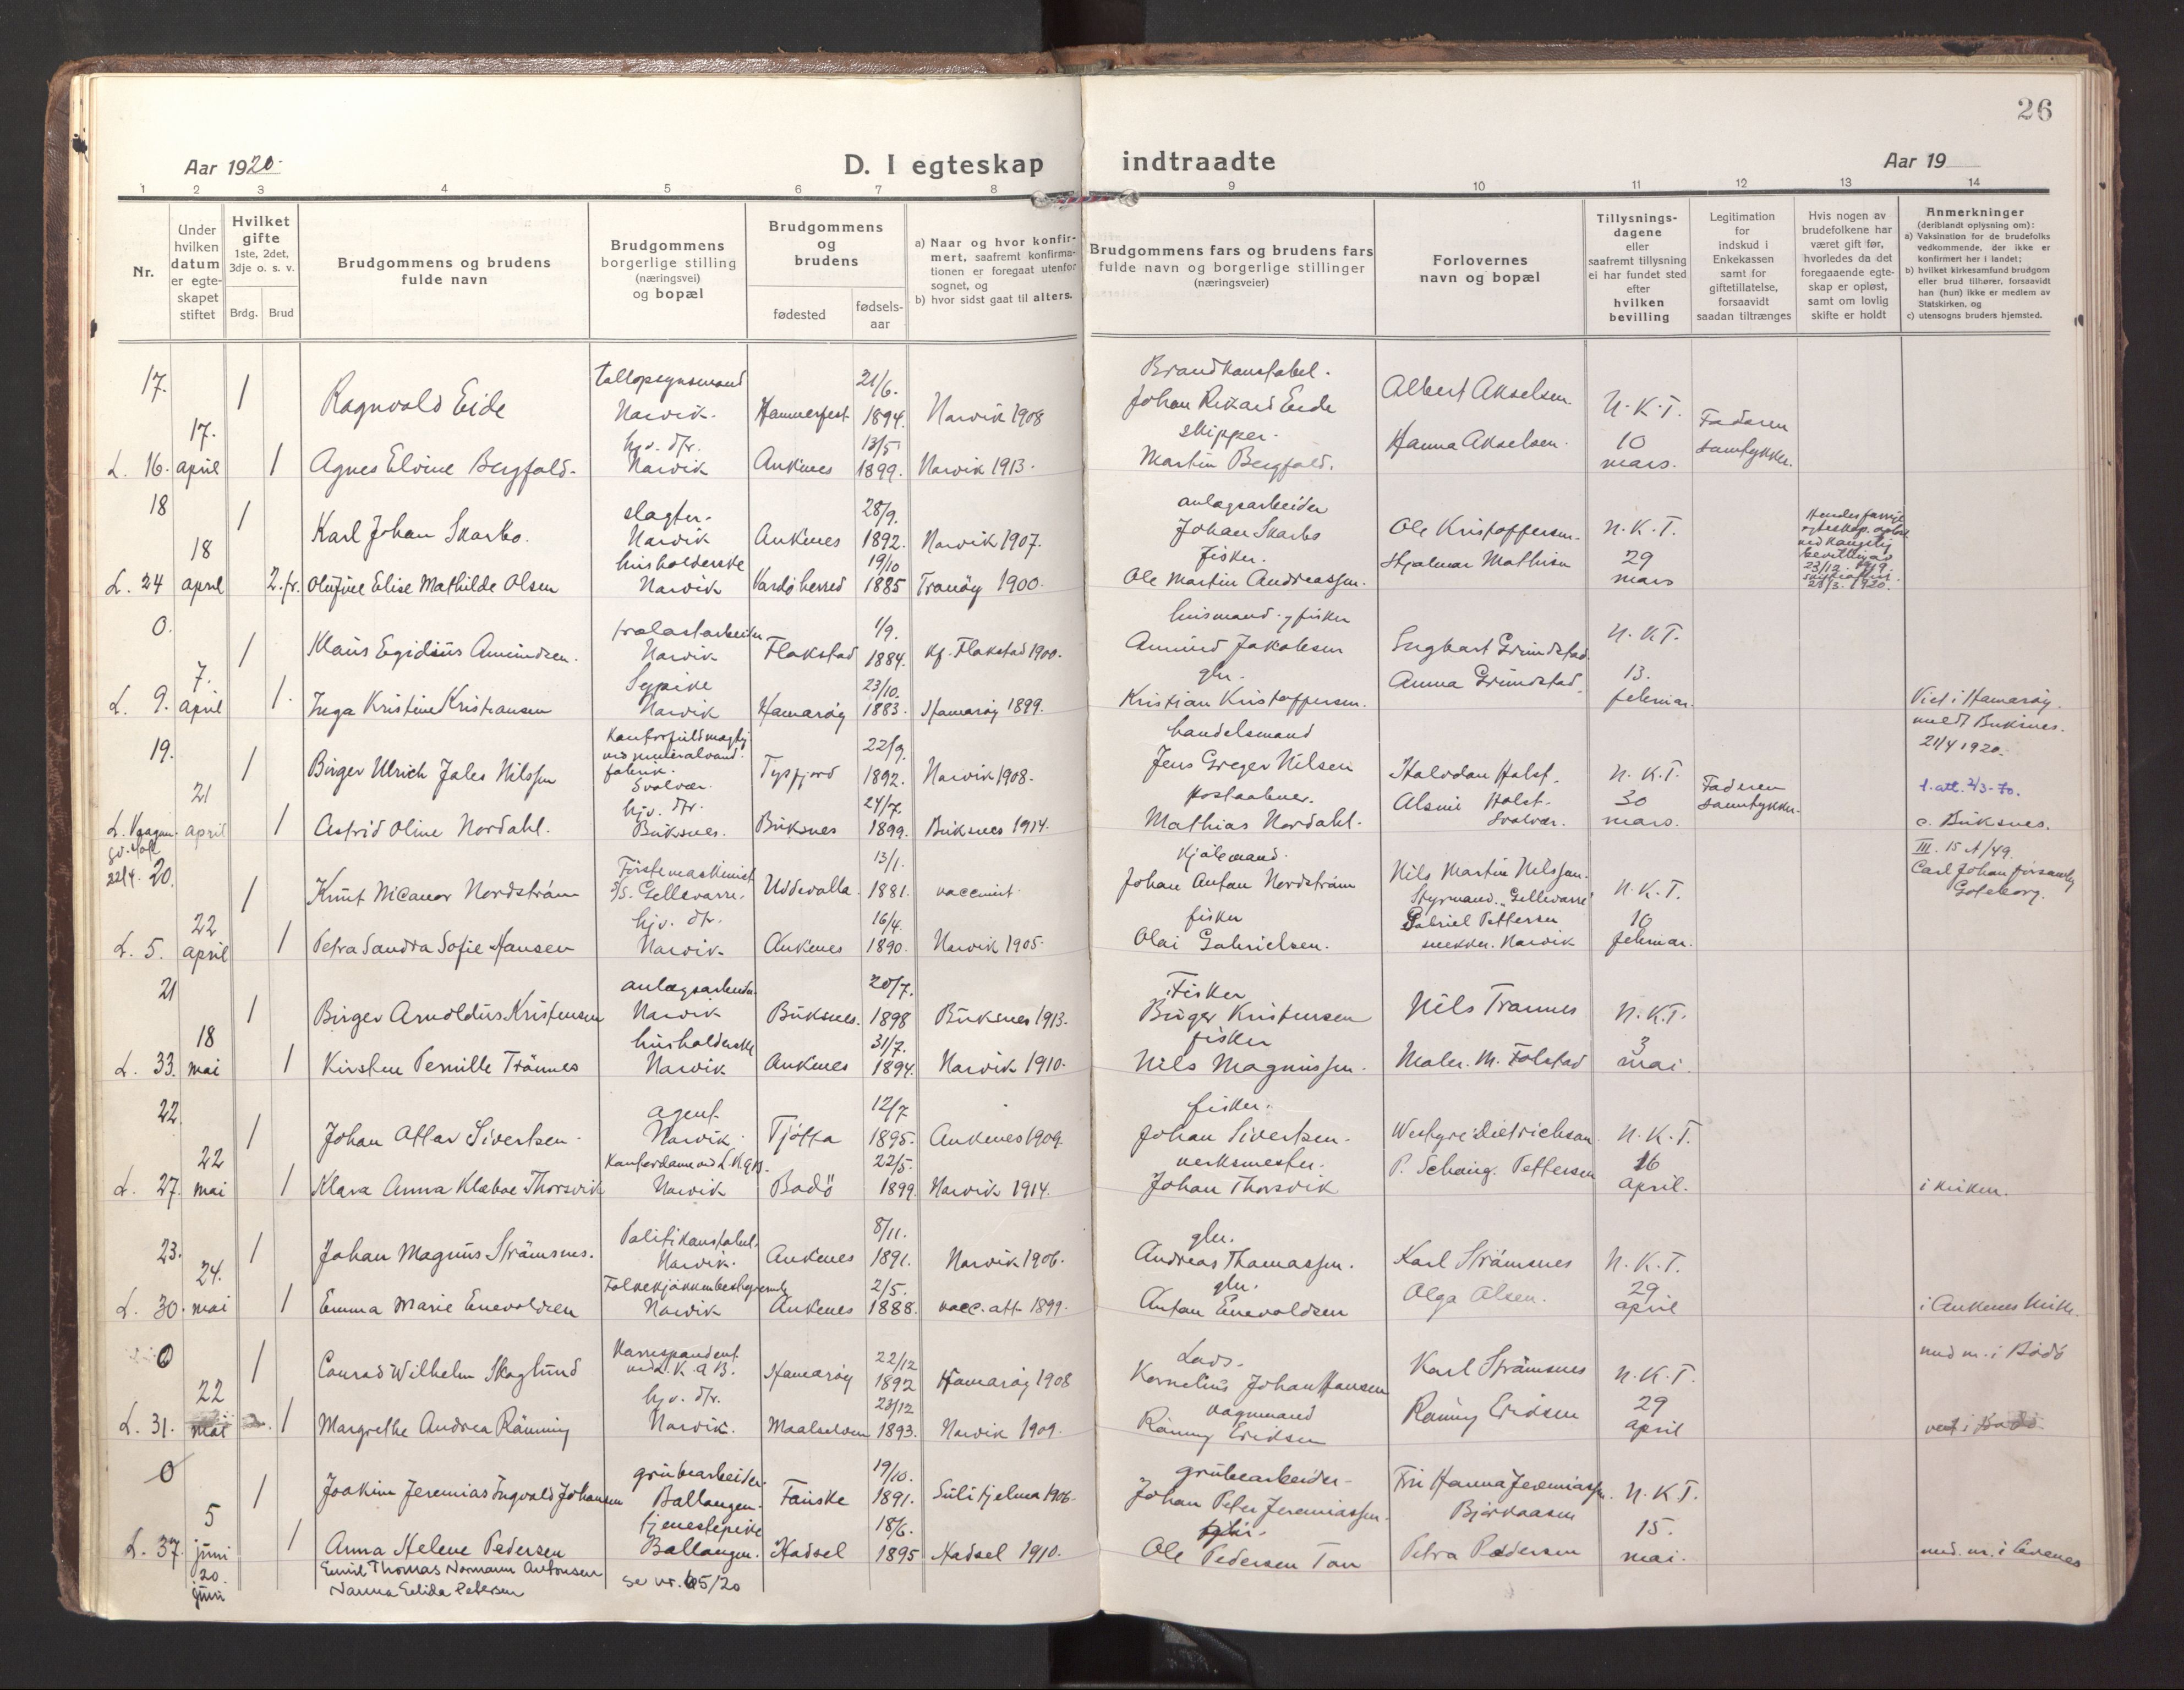 26
Aar 1920.
D. I egteskap indtraadte
Aar 19
1 2 3 4 5 6 7 8 9 10 11 12 13 14
Nr.
Under hvilken datum er egteskapet stiftet
Hvilket gifte
1ste, 2det, 3dje o. s. v.
Brdg. Brud
Brudgommens og brudens
fulde navn
Brudgommens
borgerlige stilling
(næringsvei)
og bopæl
Brudgommens
og
brudens
fødested
fødsels-
aar
a) Naar og hvor konfir-
mert, saafremt konfirma-
tionen er foregaat utenfor
sognet, og
b) hvor sidst gaat til alters.
Brudgommens fars og brudens fars
fulde navn og borgerlige stillinger
(næringsveier)
Forlovernes
navn og bopæl
Tillysnings-
dagene
eller
saafremt tillysning
ei har fundet sted
efter
hvilken
bevilling
Legitimation
for
indskud i
Enkekassen
samt for
giftetillatelse,
forsaavidt
saadan tiltrænges
Hvis nogen av
brudefolkene har
været gift før,
hvorledes da det
foregaaende egte-
skap er opløst,
samt om lovlig
skifte er holdt
Anmerkninger
(deriblandt oplysning om):
a) Vaksination for de brudefolks
vedkommende, der ikke er
konfirmert her i landet;
b) hvilket kirkesamfund brudgom
eller brud tilhører, forsaavidt
han (hun) ikke er medlem av
Statskirken, og
c) utensogns bruders hjemsted.
17. 1 Ragnvald Eide Narvik. Hammerfest 21/6. 1894. Narvik 1908
Brandkonstabel. Johan Rikard Eide Albert Akselsen N.K.T. Faderen
L. 16. 17. april 1 Agnes Elvine Bergfald. hjv. dtr. Narvik Ankenes 13/5 1899. Narvik 1913.
skipper. Martin Bergfald. Hanna Akselsen. 10 mars. samtykker.
18 1 Karl Johan Skarbo. slagter. Narvik Ankenes 28/9. 1892. Narvik 1907.
anlagsarbeider Johan Skarbo Ole Kristoffersen. N.K.T.
L. 24 18 april 2.fr. Olufine Elise Mathilde Olsen husholderske Narvik Vardø herred 19/10 1885 Tranøy 1900.
Fisker. Ole Martin Andreassen. Hjalmar Mathisen 29 mars
bevilling av
23/12 1919.
23/3 1920.
0. 1 Klaus Egidius Amundsen. Narvik Flakstad 1/9. 1884. Kf. Flakstad 1900.
husmand og fisker Amund Jakobsen Ingbart Grundstad N.K.T.
L. 9. 7. april 1. Inga Kristine Kristiansen Sypike Narvik Hamarøy 23/10. 1883. Hamarøy 1899.
gbr. Kristian Kristoffersen. Anna Grundstad. 13. februar. Viet i Hamarøy.
19. 1 Birger Ulrich Jales Nilssen
fabrik. Svolvær. Tysfjord 22/9. 1892. Narvik 1908.
handelsmand Jens Greger Nilsen Halvdan Holst. N.K.T. Faderen
meldt Buksnes.
21/4 1920.
L. Vaagan. 21 april 1 Astrid Oline Nordahl. hjv. dtr. Buksnes. Buksnes 24/7. 1899. Buksnes 1914.
postaabner. Mathias Nordahl. Holst. Svolvær. 30 mars. samtykker.
1. att. 2/3-70.
c. Buksnes.
22/4. 20. 1 Knut Nicanor Nordström Förstemaskinist Uddevalla 13/1. 1881. vaccinert
Johan Anton Nordström Nils Martin Nilsson. Styrmand "Gellivarre" N.K.T.
III. 15 A/49.
Carl Johan forsamling
Goteborg.
L. 5. 22 april 1 Petra Sandra Sofie Hansen hjv. dtr. Narvik. Ankenes 16/4. 1890. Narvik 1905.
fisker Olai Gabrielsen. Gabriel Pettersen Narvik 10 februar.
21 1 Birger Arnoldus Kristensen anlægsarbeider Narvik Buksnes. 20/7. 1898 Buksnes 1913.
Fisker Birger Kristensen Nils Trannes N.K.T.
L. 33. 18 mai 1 Kirsten Pernille Trönnes husholderske Narvik Ankenes 31/7. 1894. Narvik 1910.
fisker Nils Magnussen. Maler. M. Folstad 3 mai.
22. 1 Johan Ottar Sivertsen. agent Narvik. Tjötta 12/7 1895. Ankenes 1909.
fisker. Johan Sivertsen. Westgre Dietrichson. N.K.T.
L. 27. 22 mai 1 Klara Anna Klæboe Thorsvik Narvik Bodö 22/5. 1899. Narvik 1914.
verksmester. Johan Thorsvik P. Schøng. Pettersen 16 april. i kirken.
23. 1 Johan Magnus Strömsnes. Politikonstabel. Narvik. Ankenes 8/11. 1891. Narvik 1906.
gbr. Andreas Thomassen. Karl Strömsnes N.K.T.
L. 30. 24. mai 1 Emma Marie Enevoldsen Narvik Ankenes 2/5. 1888. vacc. att. 1899.
gbr. Anton Enevoldsen Olga Olsen. 29 april i Ankenes kirke.
0 1 Conrad Wilhelm Skoglund Korrespondent ved L.K.A.B. Hamarøy 22/12 1892 Hamarøy 1908
Lods. Kornelius Johan Hansen Karl Strömsnes N.K.T. med m. i Bodö
L. 31. 22 mai 1 Margrethe Andrea Rönning hjv. dtr. Narvik. Maalselven 23/12 1893. Narvik 1909.
vognmand Rönning Eriksen Rönning Eriksen 29 april
0 1 Joakim Jeremias Ingvald Johansen grubearbeider Ballangen. Fauske 19/10. 1891. Sulitjelma 1906.
grubearbeider Johan Peter Jeremiassen. Hanna Jeremiassen. Bjørkaasen N.K.T.
L. 37. 5 juni 1 Anna Helene Pedersen tjenestepike Ballangen. Hadsel 18/6. 1895 Hadsel 1910.
Ole Pedersen Petra Pedersen 15. mai. med. m. i Evenes
20. juni Emil Thomas Normann Antonsen
Nanna Elida Petersen se nr. 65/20